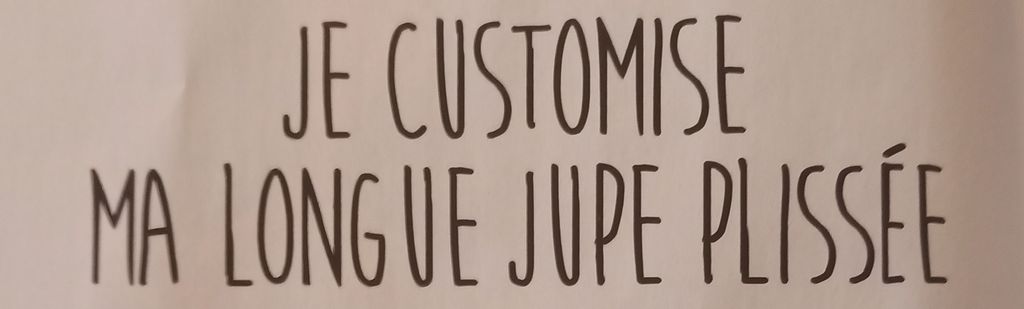 JE CUSTOMISE
MA LONGUE JUPE PLISSÉE